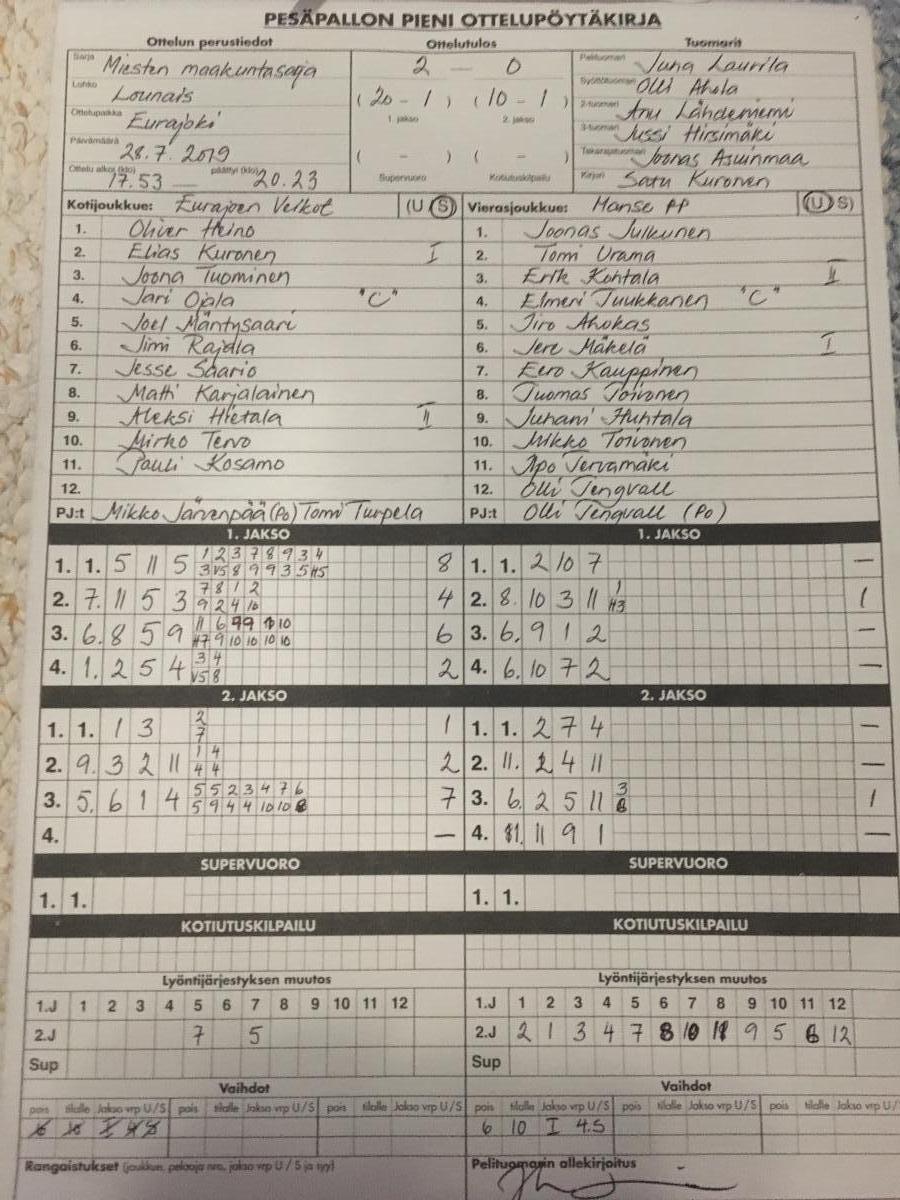 PESÄPALLON PIENI OTTELUPÖYTÄKIRJA
Ottelun perustiedot Ottelutulos Tuomarit
Sarja Miesten maakuntasarja 2 — 0 Pelituomari Juha Laurila
Lohko Lounais (20 - 1) (10 - 1) Syöttötuomari Olli Ahola
Ottelupaikka Eurajoki 1. jakso 2. jakso 2-tuomari Anu Lähdeniemi
Päivämäärä 28.7.2019 3-tuomari Jussi Hirsimäki
( - ) ( - ) Takarajatuomari Joonas Asuinmaa
Ottelu alkoi (klo) 17.53 — päättyi (klo) 20.23 Supervuoro Kotiutuskilpailu Kirjuri Satu Kuronen
Kotijoukkue: Eurajoen Veikot (U S) Vierasjoukkue: Manse PP (U S)
1. Oliver Heino 1. Joonas Julkunen
2. Elias Kuronen I 2. Tomi Urama
3. Joona Tuominen 3. Erik Kohtala II
4. Jari Ojala "C" 4. Elmeri Tuukkanen "C"
5. Joel Mäntysaari 5. Jiro Ahokas
6. Jimi Rajala 6. Jere Mäkelä I
7. Jesse Saario 7. Eero Kauppinen
8. Matti Karjalainen 8. Tuomas Toivonen
9. Aleksi Hietala II 9. Juhani Huhtala
10. Mirko Tervo 10. Mikko Toivonen
11. Pauli Kosamo 11. Apo Tervamäki
12. 12. Olli Tengvall
PJ:t Mikko Järvenpää (Po) Tomi Turpela PJ:t Olli Tengvall (Po)
1. JAKSO 1. JAKSO
1 2 3 7 8 9 3 4
1. 1. 5 11 5 3 V5 8 9 9 3 5 H5 8 1. 1. 2 10 7 —
7 8 1 2 1
2. 7. 11 5 3 9 2 4 10 4 2. 8. 10 3 11 H3 1
11 6 9 9 10 10
3. 6. 8 5 9 H7 9 10 10 10 10 6 3. 6. 9 1 2 —
3 4
4. 1. 2 5 4 V5 8 2 4. 6. 10 7 2 —
2. JAKSO 2. JAKSO
2
1. 1. 1 3 7 1 1. 1. 2 7 4 —
1 4
2. 9. 3 2 11 4 4 2 2. 11. 2 4 11 —
5 5 2 3 4 7 6 3
3. 5. 6 1 4 5 9 4 4 10 10 8 7 3. 6. 2 5 11 1
4. — 4. 11 9 1 —
SUPERVUORO SUPERVUORO
1. 1. 1. 1.
KOTIUTUSKILPAILU KOTIUTUSKILPAILU
Lyöntijärjestyksen muutos Lyöntijärjestyksen muutos
1.J 1 2 3 4 5 6 7 8 9 10 11 12 1.J 1 2 3 4 5 6 7 8 9 10 11 12
2.J 7 5 2.J 2 1 3 4 7 8 10 11 9 5 6 12
Sup Sup
Vaihdot Vaihdot
pois tilalle Jakso vrp U/S pois tilalle Jakso vrp U/S pois tilalle Jakso vrp U/S pois tilalle Jakso vrp U/S pois tilalle Jakso vrp U/S pois tilalle Jakso vrp U/
6 10 I 4.S
Rangaistukset (joukkue, pelaaja nro, jakso vrp U / S ja syy) Pelituomarin allekirjoitus